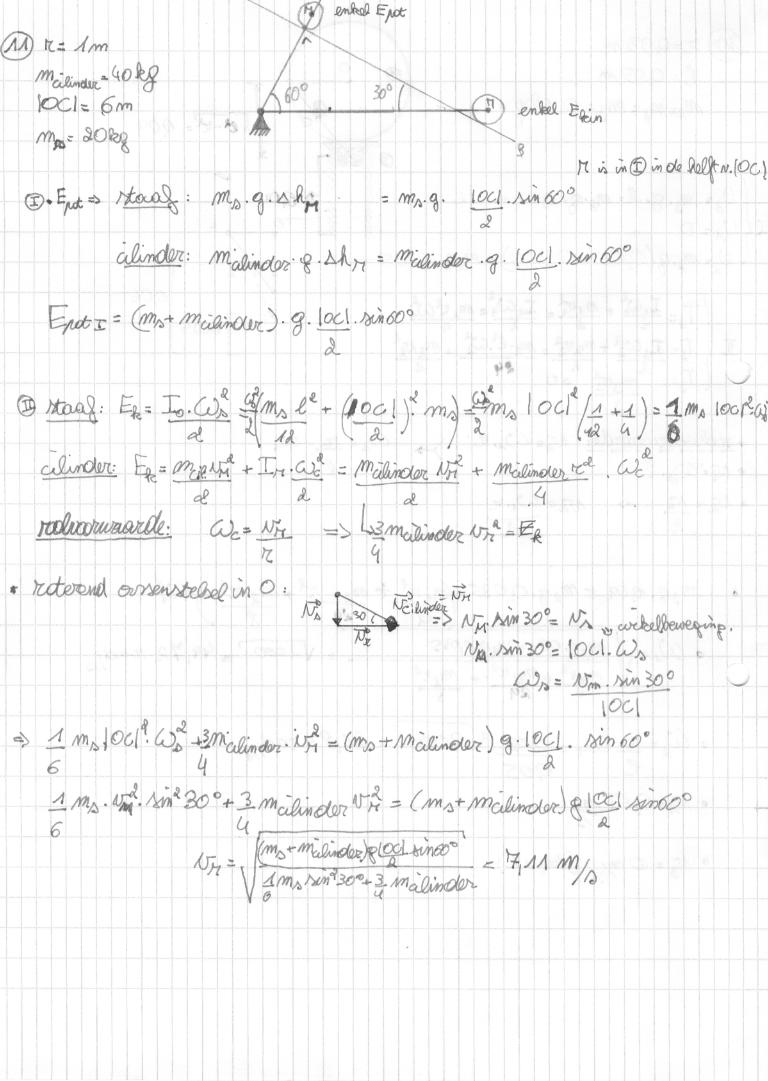 M enkel Epot
A
11 r = 1m
m cilinder = 40kg
|OC| = 6m
m s = 20kg
60° 30° M enkel Ekin
B
M is in I in de helft v. |OC|
I • Epot ⇒ staaf: m s . g . Δh M = m s . g . |OC|/2 . sin 60°
cilinder: m cilinder . g . Δh M = m cilinder . g . |OC|/2 . sin 60°
Epot I = (m s + m cilinder) . g . |OC|/2 . sin 60°
II staaf: E k = I o . ω s²/2 = ω²/2 (m s l²/12 + (|OC|/2)² . m s) = ω s²/2 m s |OC|² (1/12 + 1/4) = 1/6 m s |OC|² . ω s²
cilinder: E k = m cil v M²/2 + I M . ω c²/2 = m cilinder v M²/2 + m cilinder r²/4 . ω c²
rolvoorwaarde: ω c = v M/r ⇒ 3/4 m cilinder v M² = E k
• roterend assenstelsel in O: v s 30° v r v cilinder = v M ⇒ v M . sin 30° = v s cirkelbeweging.
v M . sin 30° = |OC| . ω s
ω s = v m . sin 30°/|OC|
⇒ 1/6 m s |OC|² . ω s² + 3/4 m cilinder . v M² = (m s + m cilinder) g . |OC|/2 . sin 60°
1/6 m s . v M² . sin² 30° + 3/4 m cilinder v M² = (m s + m cilinder) g |OC|/2 sin 60°
v M = √((m s + m cilinder) g |OC|/2 sin 60° / (1/6 m s sin² 30° + 3/4 m cilinder)) = 7,11 m/s